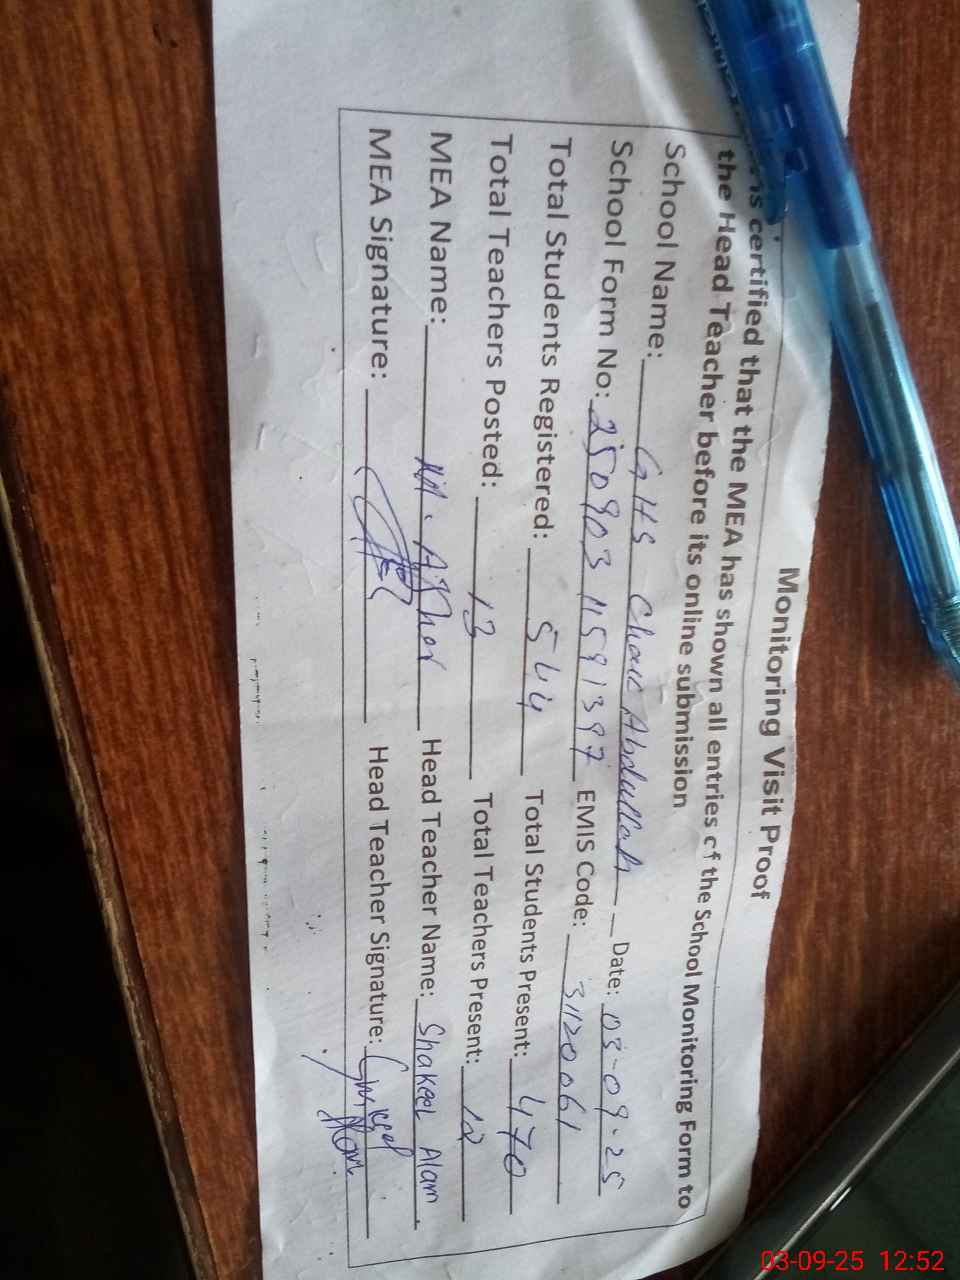 Monitoring Visit Proof
is certified that the MEA has shown all entries of the School Monitoring Form to
the Head Teacher before its online submission
School Name: GHS Chak Abdullah Date: 03-09-25
School Form No: 250903 1159 1397 EMIS Code: 31120061
Total Students Registered: 544 Total Students Present: 470
Total Teachers Posted: 13 Total Teachers Present: 12
MEA Name: M. Ather Head Teacher Name: Shakeel Alam
MEA Signature: Head Teacher Signature:
03-09-25 12:52